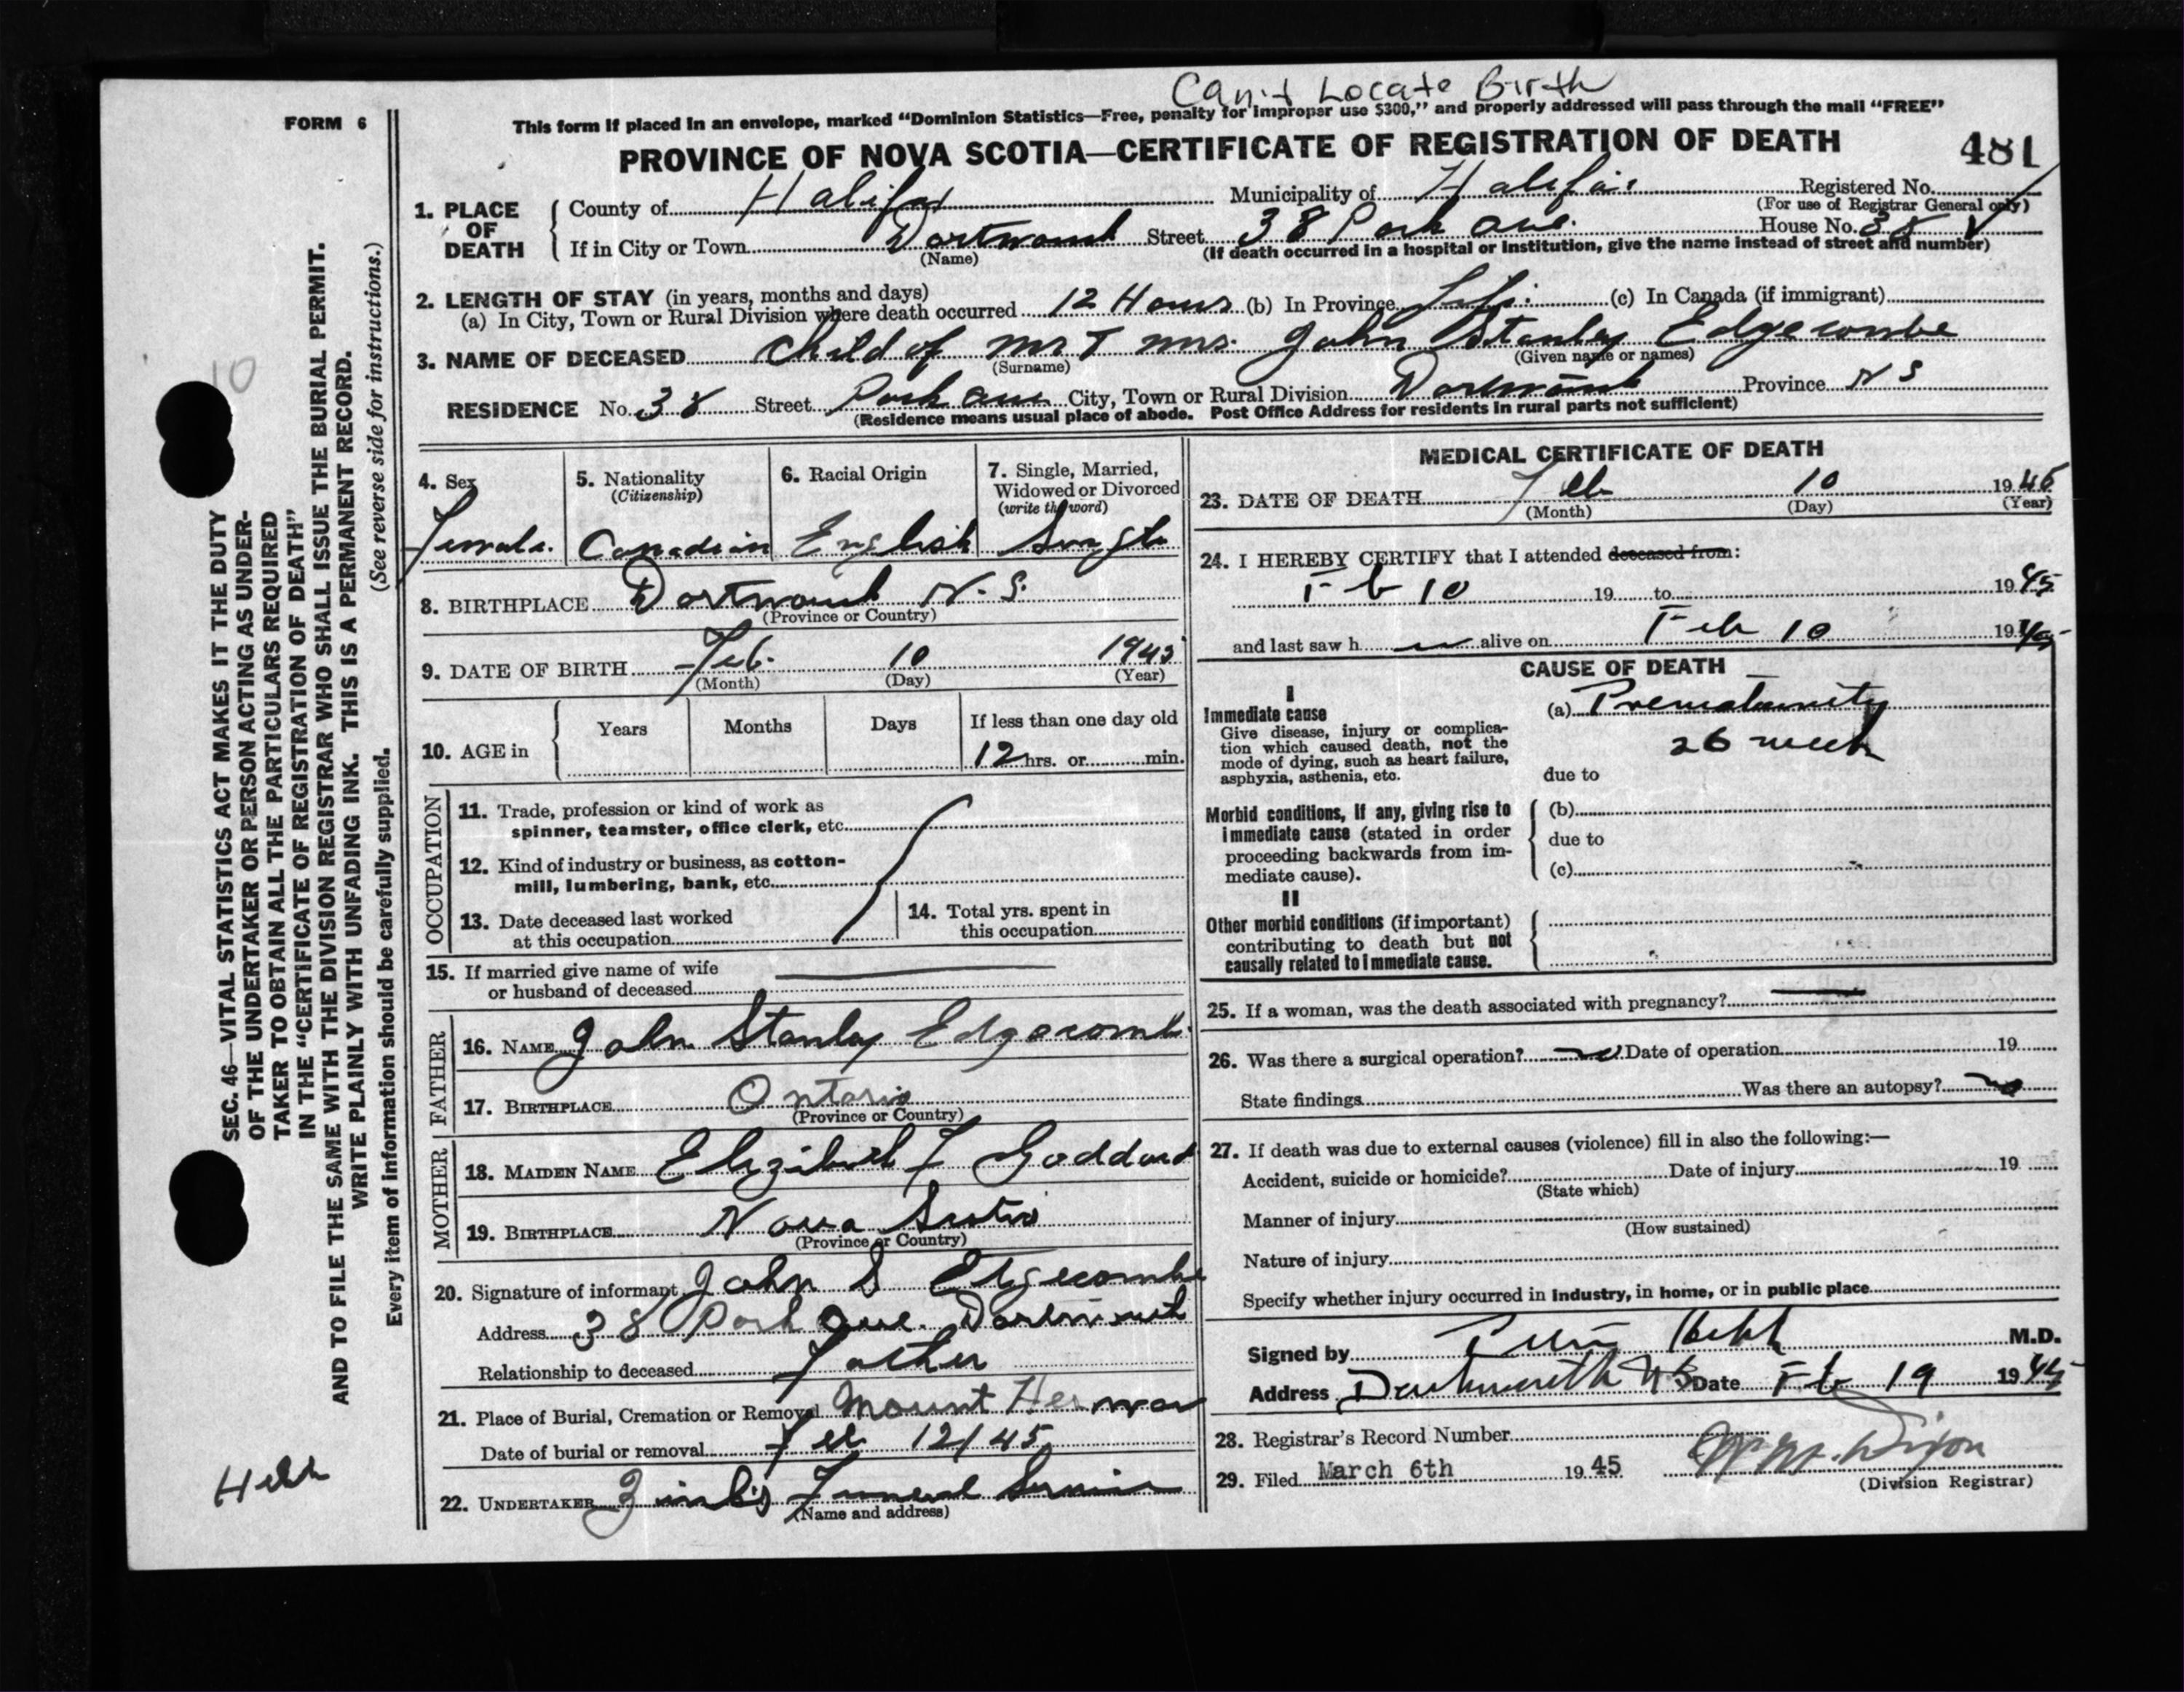 Can't Locate Birth
FORM 6
This form if placed in an envelope, marked “Dominion Statistics—Free, penalty for improper use $300,” and properly addressed will pass through the mail “FREE”
PROVINCE OF NOVA SCOTIA—CERTIFICATE OF REGISTRATION OF DEATH
481
1. PLACE OF DEATH
County of Halifax Municipality of Halifax Registered No.
(For use of Registrar General only)
If in City or Town Dartmouth Street 38 Park Ave. House No. 38
(Name) (If death occurred in a hospital or institution, give the name instead of street and number)
2. LENGTH OF STAY (in years, months and days)
(a) In City, Town or Rural Division where death occurred 12 Hours (b) In Province Life (c) In Canada (if immigrant)
3. NAME OF DECEASED Child of Mr & Mrs. John Stanley Edgecombe
(Surname) (Given name or names)
RESIDENCE No. 38 Street Park Ave City, Town or Rural Division Dartmouth Province N S
(Residence means usual place of abode. Post Office Address for residents in rural parts not sufficient)
4. Sex
Female
5. Nationality
(Citizenship)
Canadian
6. Racial Origin
English
7. Single, Married,
Widowed or Divorced
(write the word)
Single
8. BIRTHPLACE Dartmouth N. S.
(Province or Country)
9. DATE OF BIRTH Feb. 10 1945
(Month) (Day) (Year)
10. AGE in
Years Months Days If less than one day old
12 hrs. or min.
OCCUPATION
11. Trade, profession or kind of work as
spinner, teamster, office clerk, etc.
12. Kind of industry or business, as cotton-
mill, lumbering, bank, etc.
13. Date deceased last worked
at this occupation
14. Total yrs. spent in
this occupation
15. If married give name of wife
or husband of deceased
FATHER
16. NAME John Stanley Edgecombe
17. BIRTHPLACE Ontario
(Province or Country)
MOTHER
18. MAIDEN NAME Elizabeth F Goddard
19. BIRTHPLACE Nova Scotia
(Province or Country)
20. Signature of informant John S Edgecombe
Address 38 Park Ave. Dartmouth
Relationship to deceased Father
21. Place of Burial, Cremation or Removal Mount Hermon
Date of burial or removal Feb 12/45
22. UNDERTAKER Zinck's Funeral Service
(Name and address)
MEDICAL CERTIFICATE OF DEATH
23. DATE OF DEATH Feb 10 1945
(Month) (Day) (Year)
24. I HEREBY CERTIFY that I attended deceased from:
Feb 10 19 to 1945
and last saw h alive on Feb 10 1945
CAUSE OF DEATH
I
Immediate cause
Give disease, injury or complica-
tion which caused death, not the
mode of dying, such as heart failure,
asphyxia, asthenia, etc.
(a) Prematurity
26 week
due to
Morbid conditions, if any, giving rise to
immediate cause (stated in order
proceeding backwards from im-
mediate cause).
(b)
due to
(c)
II
Other morbid conditions (if important)
contributing to death but not
causally related to immediate cause.
25. If a woman, was the death associated with pregnancy?
26. Was there a surgical operation? no Date of operation 19
State findings Was there an autopsy? no
27. If death was due to external causes (violence) fill in also the following:—
Accident, suicide or homicide? Date of injury 19
(State which)
Manner of injury
(How sustained)
Nature of injury
Specify whether injury occurred in industry, in home, or in public place
Signed by Hebb M.D.
Address Dartmouth NS Date Feb 19 1945
28. Registrar's Record Number
29. Filed March 6th 1945 Dixon
(Division Registrar)
SEC. 46—VITAL STATISTICS ACT MAKES IT THE DUTY
OF THE UNDERTAKER OR PERSON ACTING AS UNDER-
TAKER TO OBTAIN ALL THE PARTICULARS REQUIRED
IN THE “CERTIFICATE OF REGISTRATION OF DEATH”
AND TO FILE THE SAME WITH THE DIVISION REGISTRAR WHO SHALL ISSUE THE BURIAL PERMIT.
WRITE PLAINLY WITH UNFADING INK. THIS IS A PERMANENT RECORD.
(See reverse side for instructions.)
Every item of information should be carefully supplied.
10
Hebb